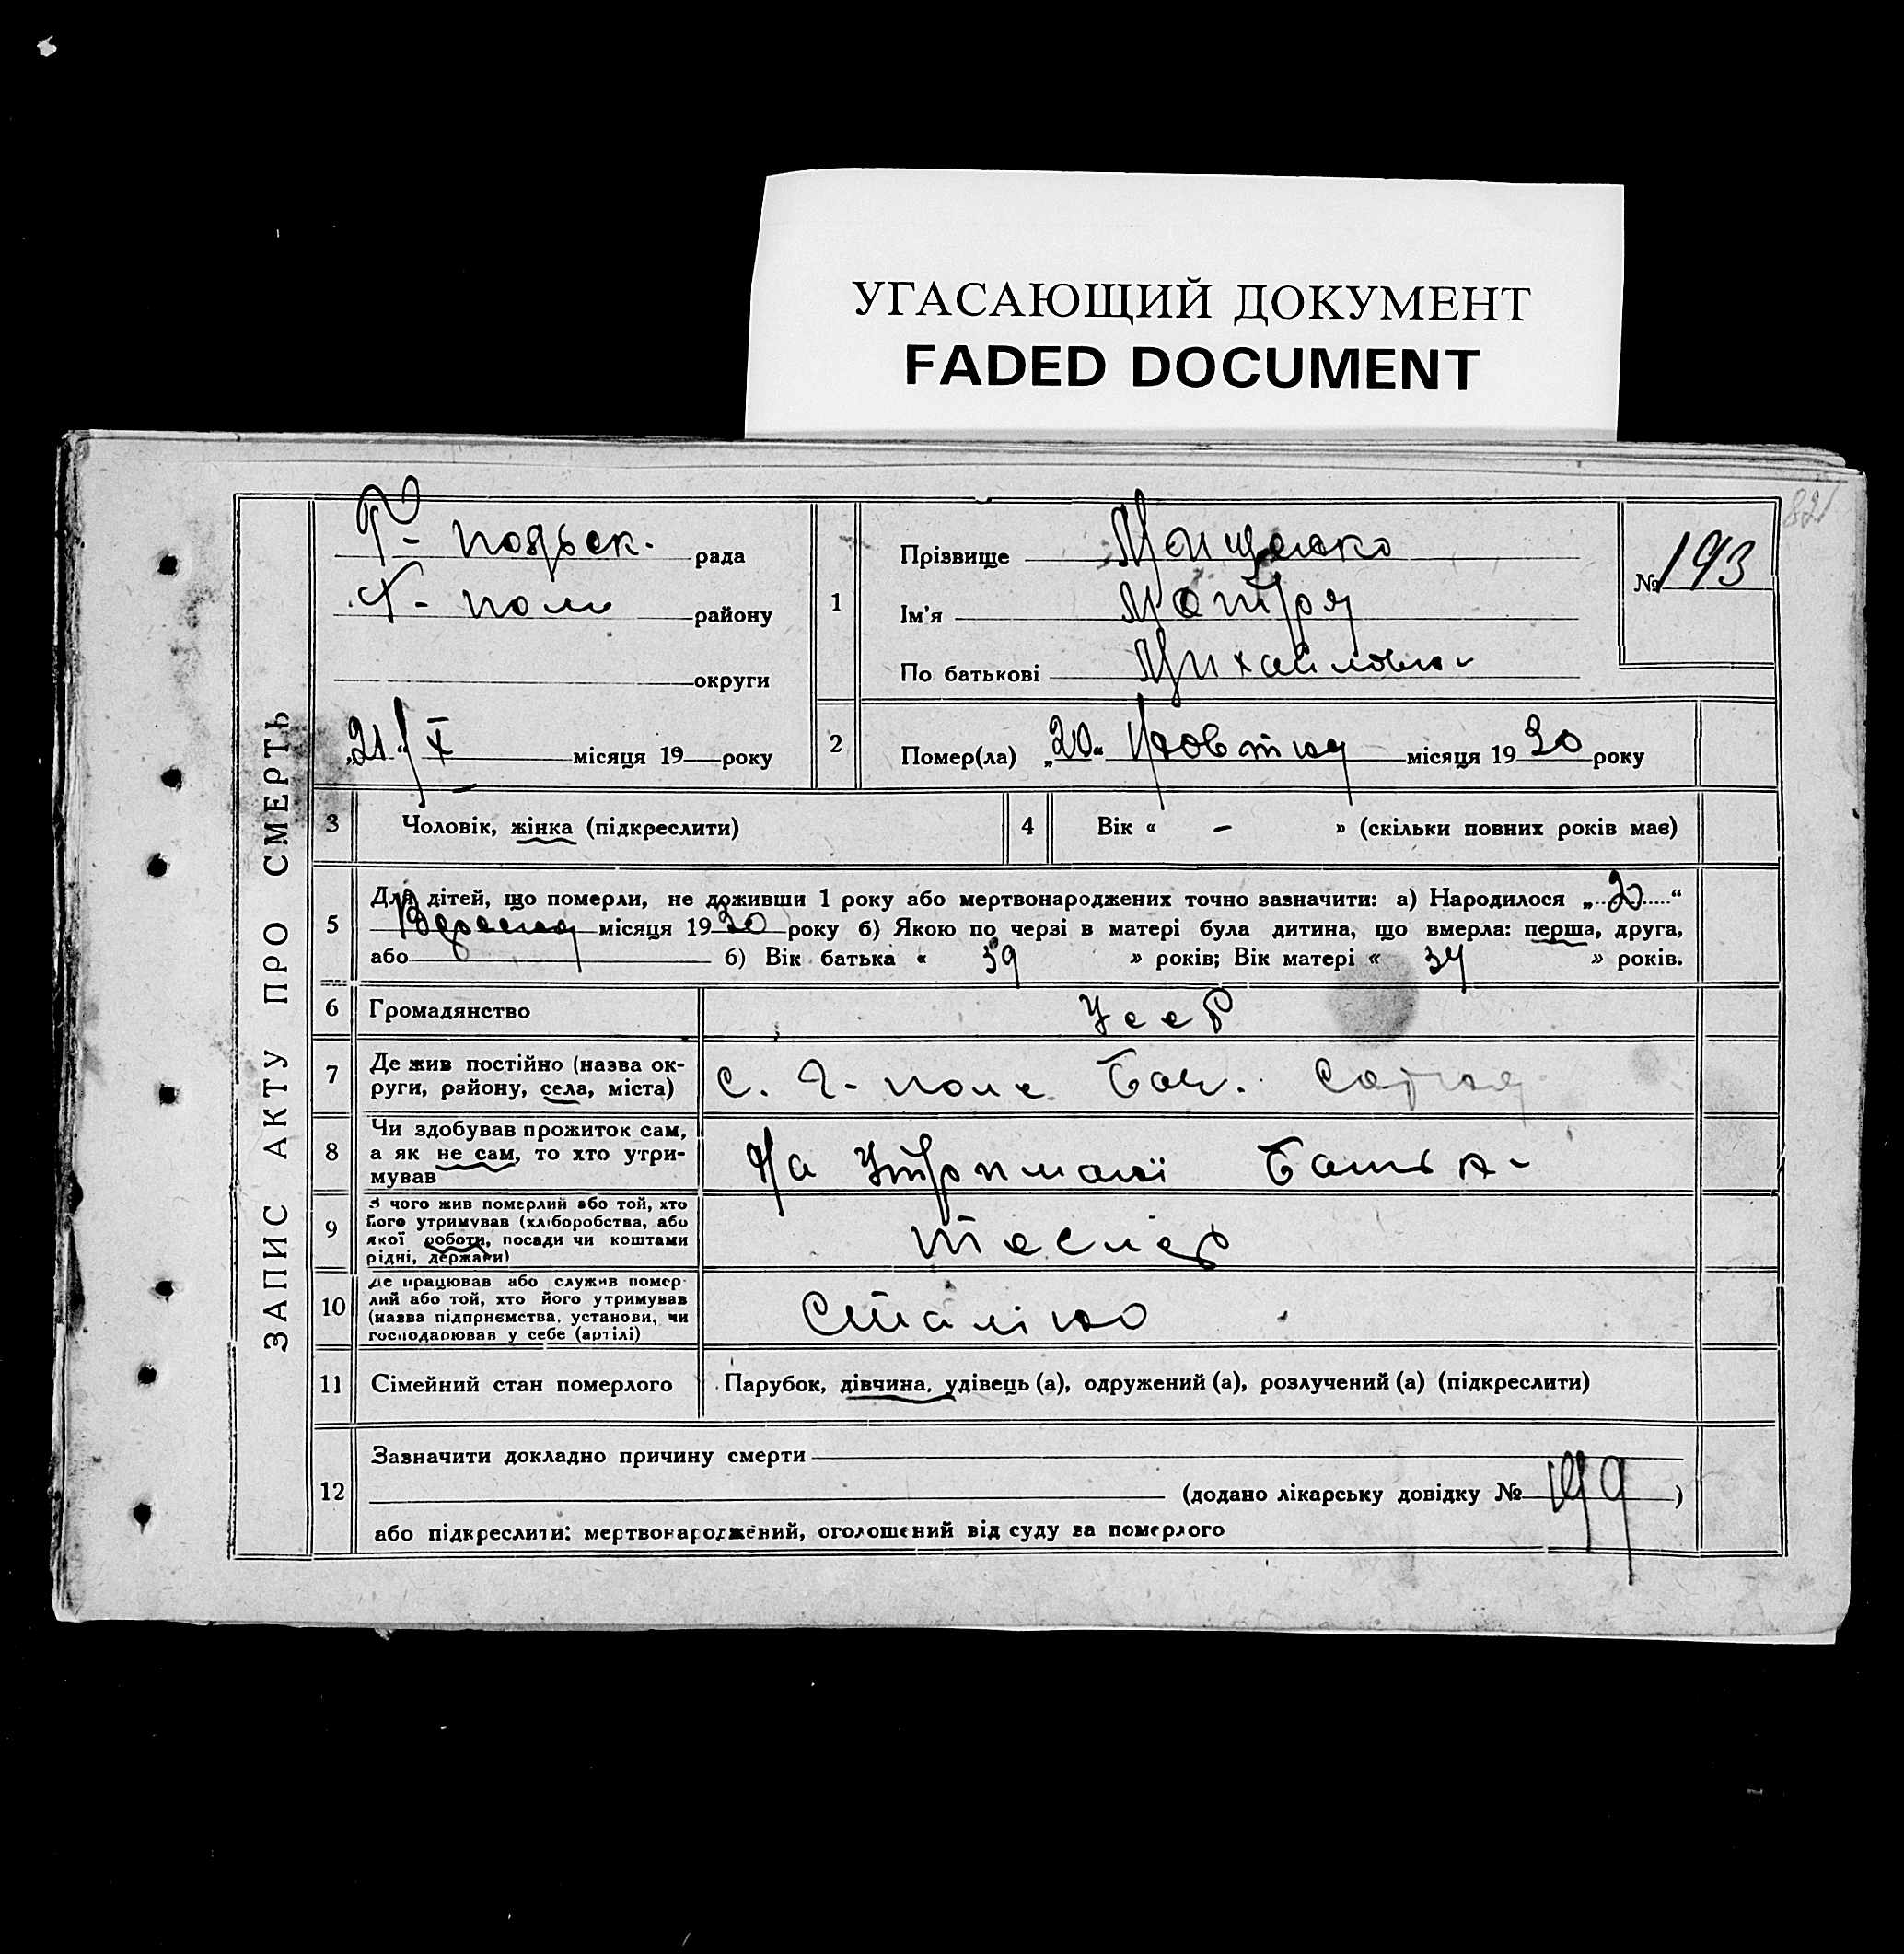 УГАСАЮЩИЙ ДОКУМЕНТ
FADED DOCUMENT
82
ЗАПИС АКТУ ПРО СМЕРТЬ
Г- польск. рада
Г- поле району
округи
„21“ X місяця 19 року
1
Прізвище Мищенко
Ім'я Мотря
По батькові Михайловна
№ 193
2
Помер(ла) „20“ Жовтня місяця 19 30 року
3 Чоловік, жінка (підкреслити)
4 Вік « - » (скільки повних років має)
5
Для дітей, що померли, не доживши 1 року або мертвонароджених точно зазначити: а) Народилося „ “
Вересня місяця 19 30 року б) Якою по черзі в матері була дитина, що вмерла: перша, друга,
або б) Вік батька « 39 » років; Вік матері « 34 » років.
6 Громадянство УССР
7
Де жив постійно (назва ок-
руги, району, села, міста)
с. Г- поле Боч. Сотня
8
Чи здобував прожиток сам,
а як не сам, то хто утри-
мував
На Утриманї Батька
9
З чого жив померлий або той, хто
його утримував (хліборобства, або
якої роботи, посади чи коштами
рідні, держави)
Тесляр
10
Де працював або служив помер-
лий або той, хто його утримував
(назва підприємства, установи, чи
господарював у себе (артілі)
Сталіно
11 Сімейний стан померлого
Парубок, дівчина, удівець (а), одружений (а), розлучений (а) (підкреслити)
12
Зазначити докладно причину смерти
(додано лікарську довідку № )
або підкреслити: мертвонароджений, оголошений від суду за померлого